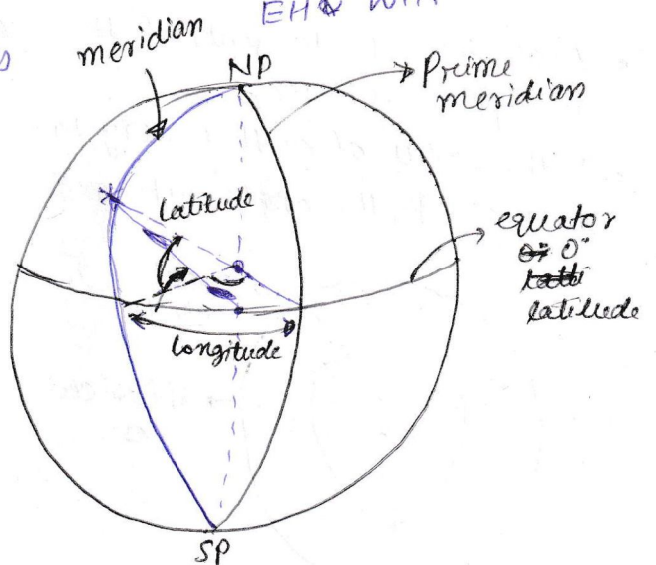 EH & WH
meridian
NP
Prime
meridian
latitude
equator
0°
latitude
longitude
SP